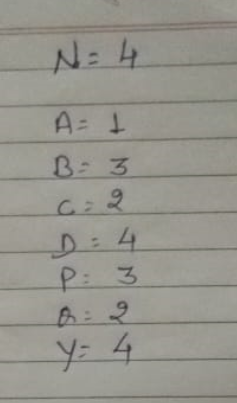 N = 4
A = 1
B = 3
C = 2
D = 4
P = 3
Q = 2
Y = 4